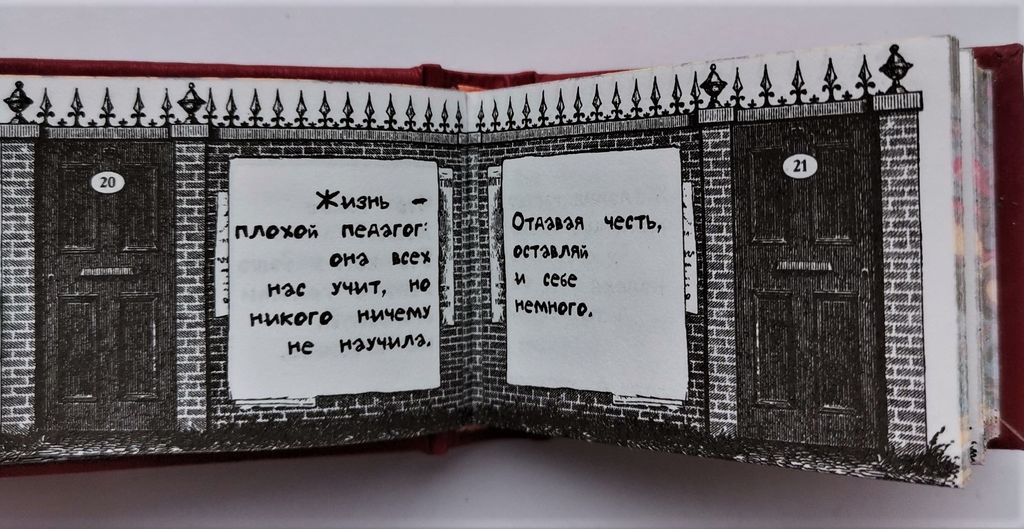 20
Жизнь –
плохой педагог:
она всех
нас учит, но
никого ничему
не научила.
Отдавая честь,
оставляй
и себе
немного.
21